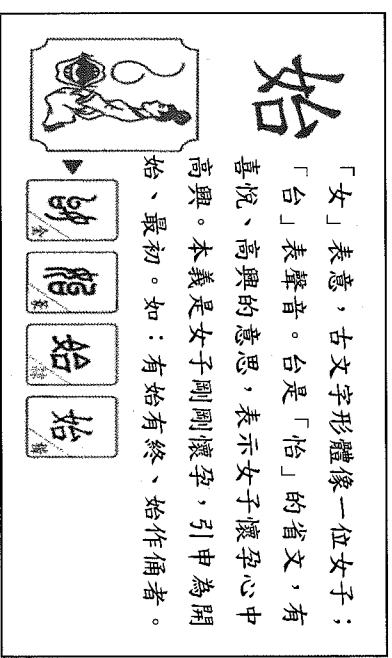 始
「女」表意，古文字形體像一位女子；
「台」表聲音。台是「怡」的省文，有
喜悅、高興的意思，表示女子懷孕心中
高興。本義是女子剛剛懷孕，引申為開
始、最初。如：有始有終、始作俑者。
始 金
始 篆
始 隸
始 楷